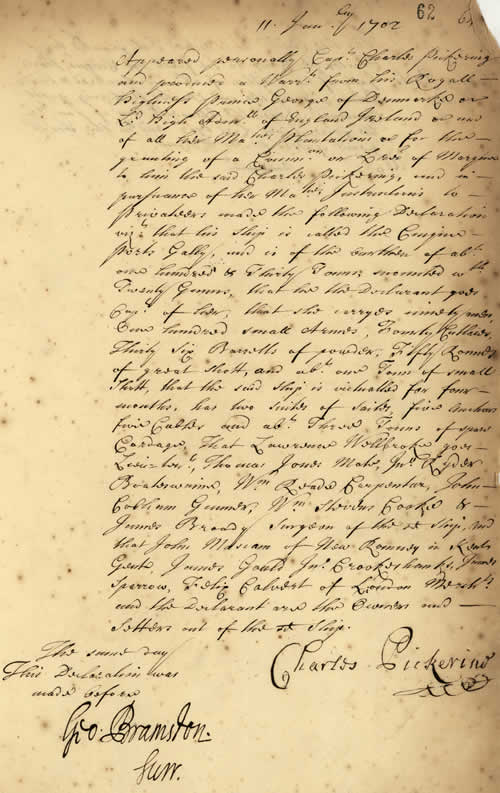 62
11. Jan.ry 1702
Appeared personally Capt. Charles Pickering
and produced a Warrt. from his Royall
Highness Prince George of Denmarke &c
Ld. High Adm.ll of England Ireland &c and
of all her Ma.ties Plantations &c for the
granting of a Commn. or Lres of Marque
to him the said Charles Pickering, and in
pursuance of her Ma.ties Instructions to
Privateers made the following Declaration
viz.t that his Ship is called the Cinque
Ports Gally, and is of the burthen of abt.
one hundred & Thirty Tonns mounted wth
Twenty Gunns, that he the Declarant goes
Capt. of her, that she carryes ninety men,
One hundred small Armes, Fourty Cutlaces,
Thirty Six Barrells of powder, Fifty Rounds
of great Shott, and abt. one Tonn of small
Shott, that the said Ship is victualled for four
months, has two suites of Sailes, five Anchors
five Cables and abt. Three Tonns of spare
Cordage, That Lawrence Wellbroke goes
Lieutent., Thomas Jones Mate, Jno. Ryder
Boatswaine, Wm. Reade Carpenter, John
Cobham Gunner, Wm. Stevens Cooke &
James Broady Surgeon of the sd Ship, And
that John Mascam of New Romney in Kent
Gent., James Gould, Jno. Crookeshanks, James
Sparrow, Felix Calvert of London Merchts.
and the Declarant are the Owners and
Setters out of the sd Ship.
The same day
This Declaration was
made before
Geo: Bramston.
Surr.
Charles Pickering